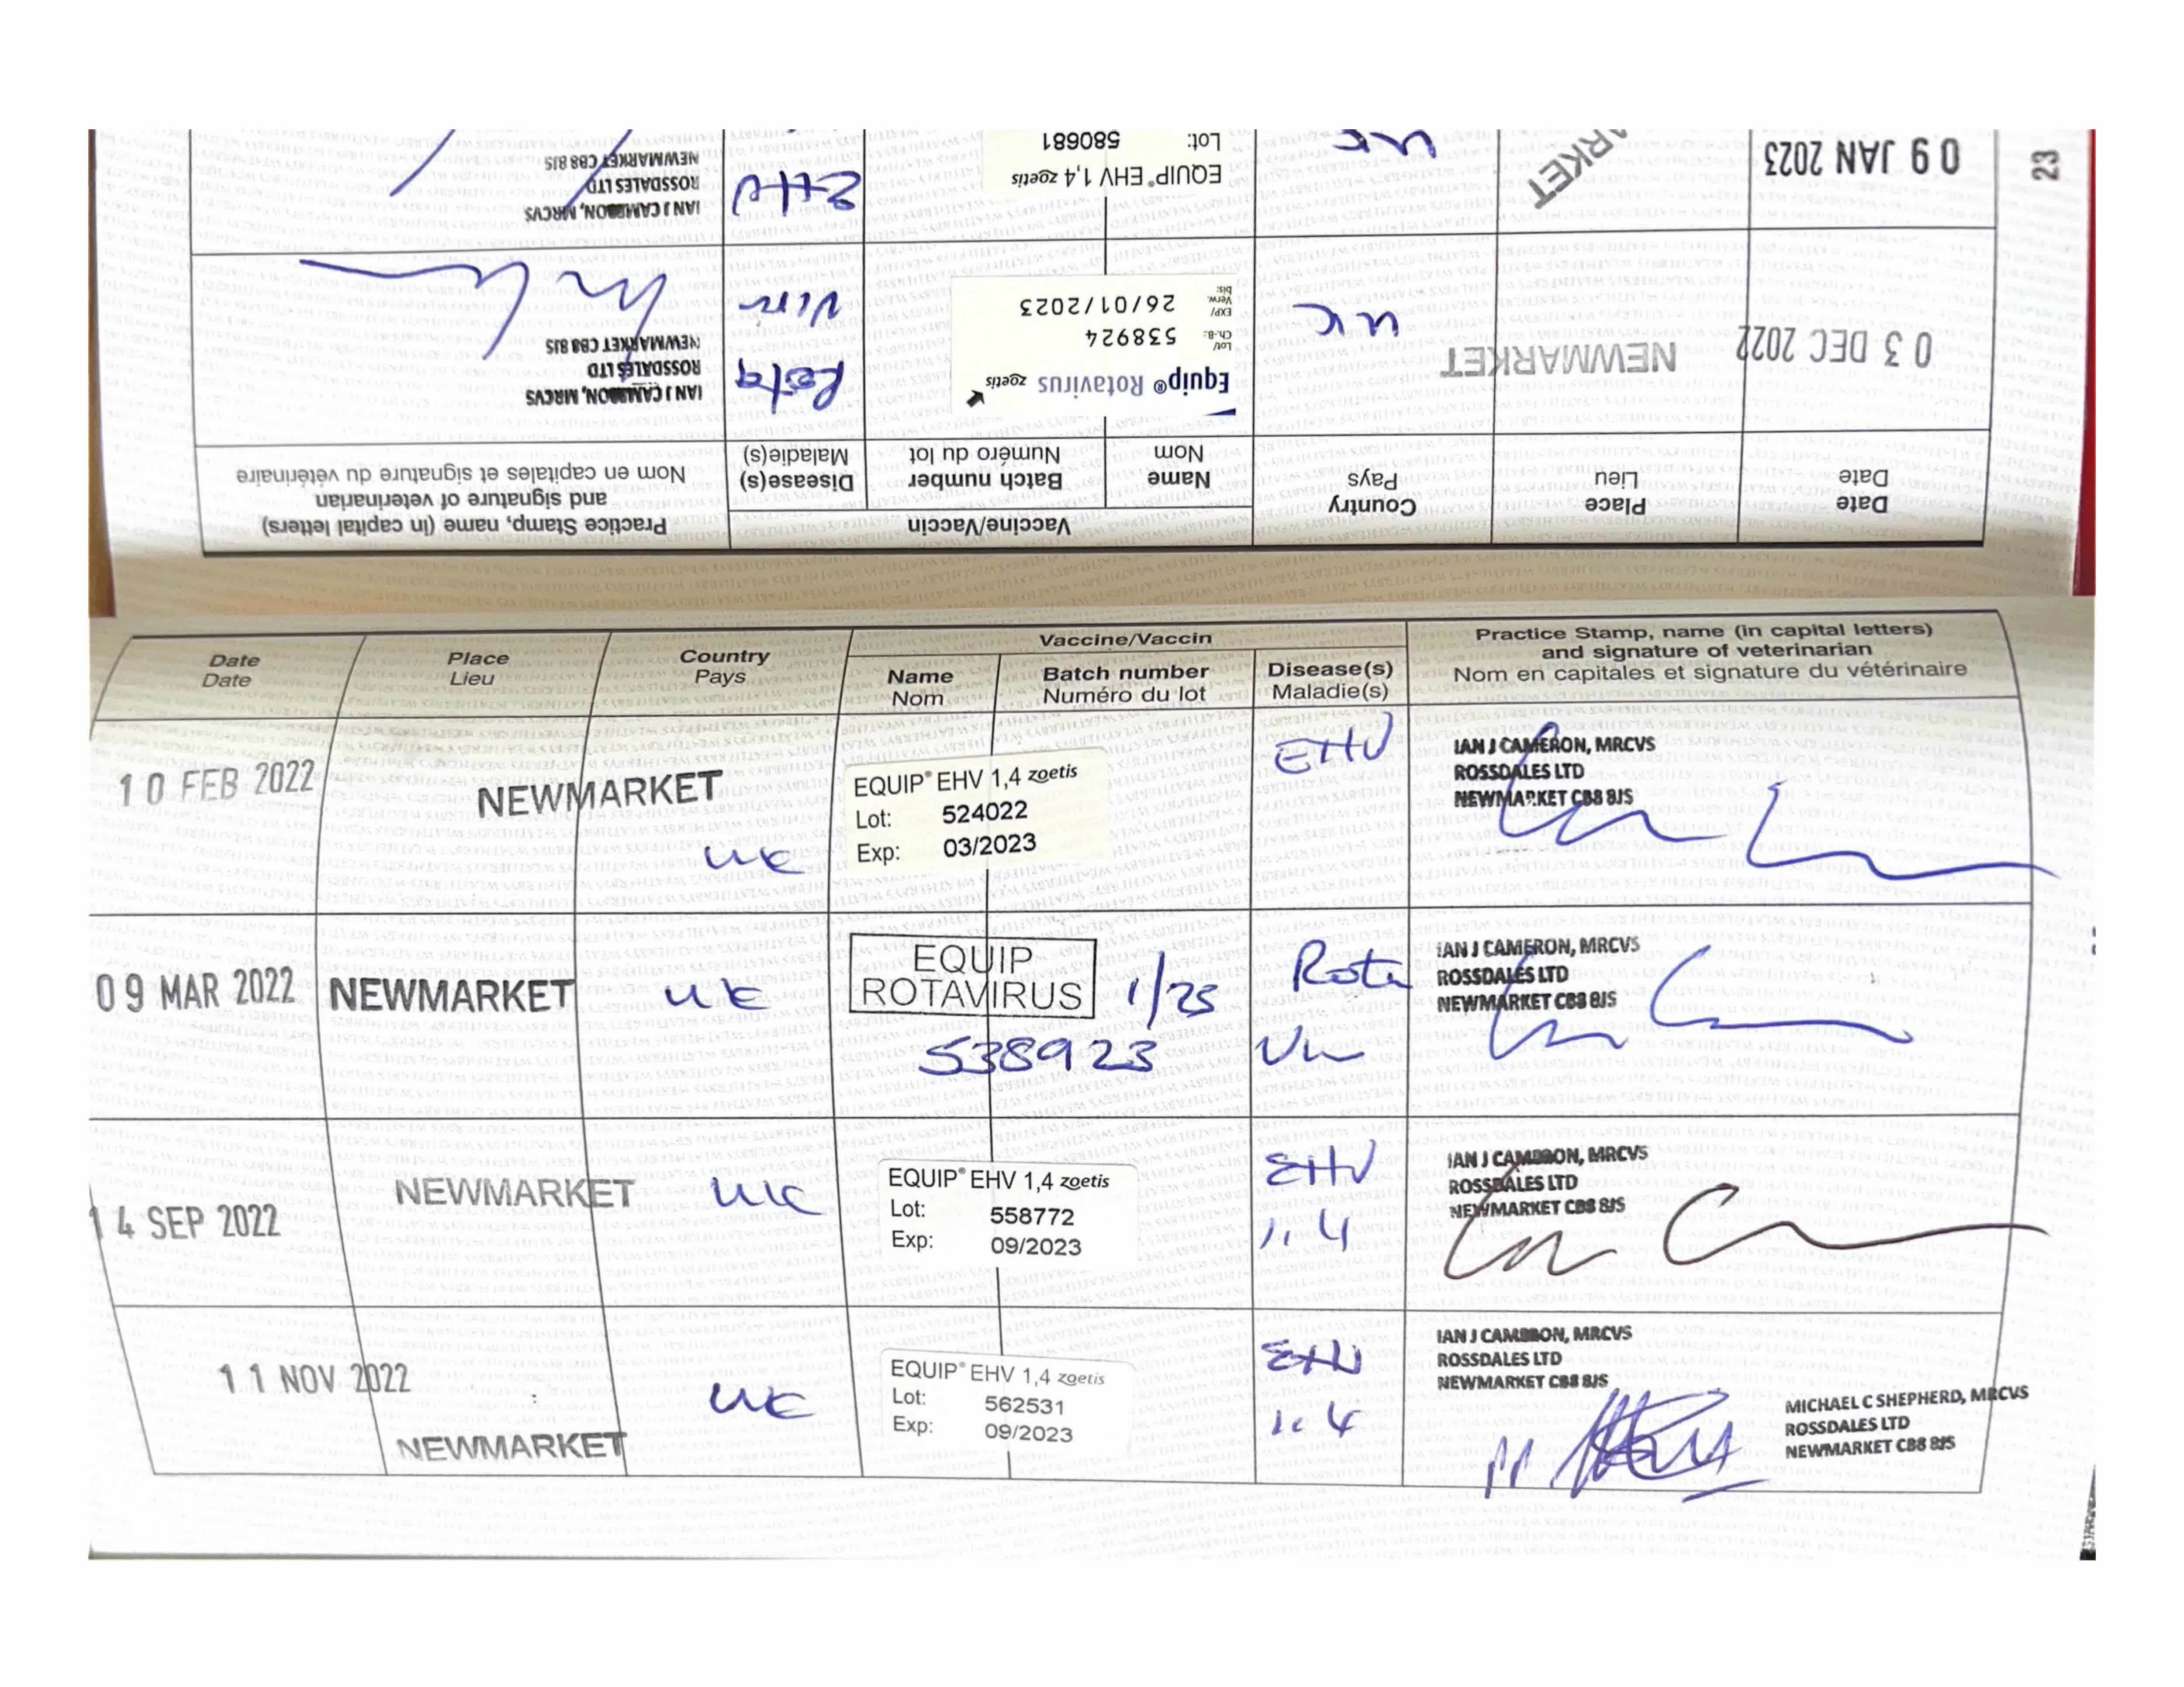 Date
Date
Place
Lieu
Country
Pays
Vaccine/Vaccin
Name
Nom
Batch number
Numéro du lot
Disease(s)
Maladie(s)
Practice Stamp, name (in capital letters)
and signature of veterinarian
Nom en capitales et signature du vétérinaire
03 DEC 2022
NEWMARKET
UK
Equip® Rotavirus zoetis
Lot/
Ch.-B.: 538924
EXP/
Verw.
bis: 26/01/2023
Rota
Vir
IAN J CAMERON, MRCVS
ROSSDALES LTD
NEWMARKET CB8 8JS
09 JAN 2023
RKET
UK
EQUIP® EHV 1,4 zoetis
Lot: 580681
EHV
IAN J CAMERON, MRCVS
ROSSDALES LTD
NEWMARKET CB8 8JS
23
Date
Date
Place
Lieu
Country
Pays
Vaccine/Vaccin
Name
Nom
Batch number
Numéro du lot
Disease(s)
Maladie(s)
Practice Stamp, name (in capital letters)
and signature of veterinarian
Nom en capitales et signature du vétérinaire
10 FEB 2022
NEWMARKET
UK
EQUIP® EHV 1,4 zoetis
Lot: 524022
Exp: 03/2023
EHV
IAN J CAMERON, MRCVS
ROSSDALES LTD
NEWMARKET CB8 8JS
09 MAR 2022
NEWMARKET
UK
EQUIP
ROTAVIRUS
538923
Rota
IAN J CAMERON, MRCVS
ROSSDALES LTD
NEWMARKET CB8 8JS
14 SEP 2022
NEWMARKET
UK
EQUIP® EHV 1,4 zoetis
Lot: 558772
Exp: 09/2023
EHV
1,4
IAN J CAMERON, MRCVS
ROSSDALES LTD
NEWMARKET CB8 8JS
11 NOV 2022
NEWMARKET
UK
EQUIP® EHV 1,4 zoetis
Lot: 562531
Exp: 09/2023
EHV
1,4
IAN J CAMERON, MRCVS
ROSSDALES LTD
NEWMARKET CB8 8JS
MICHAEL C SHEPHERD, MRCVS
ROSSDALES LTD
NEWMARKET CB8 8JS